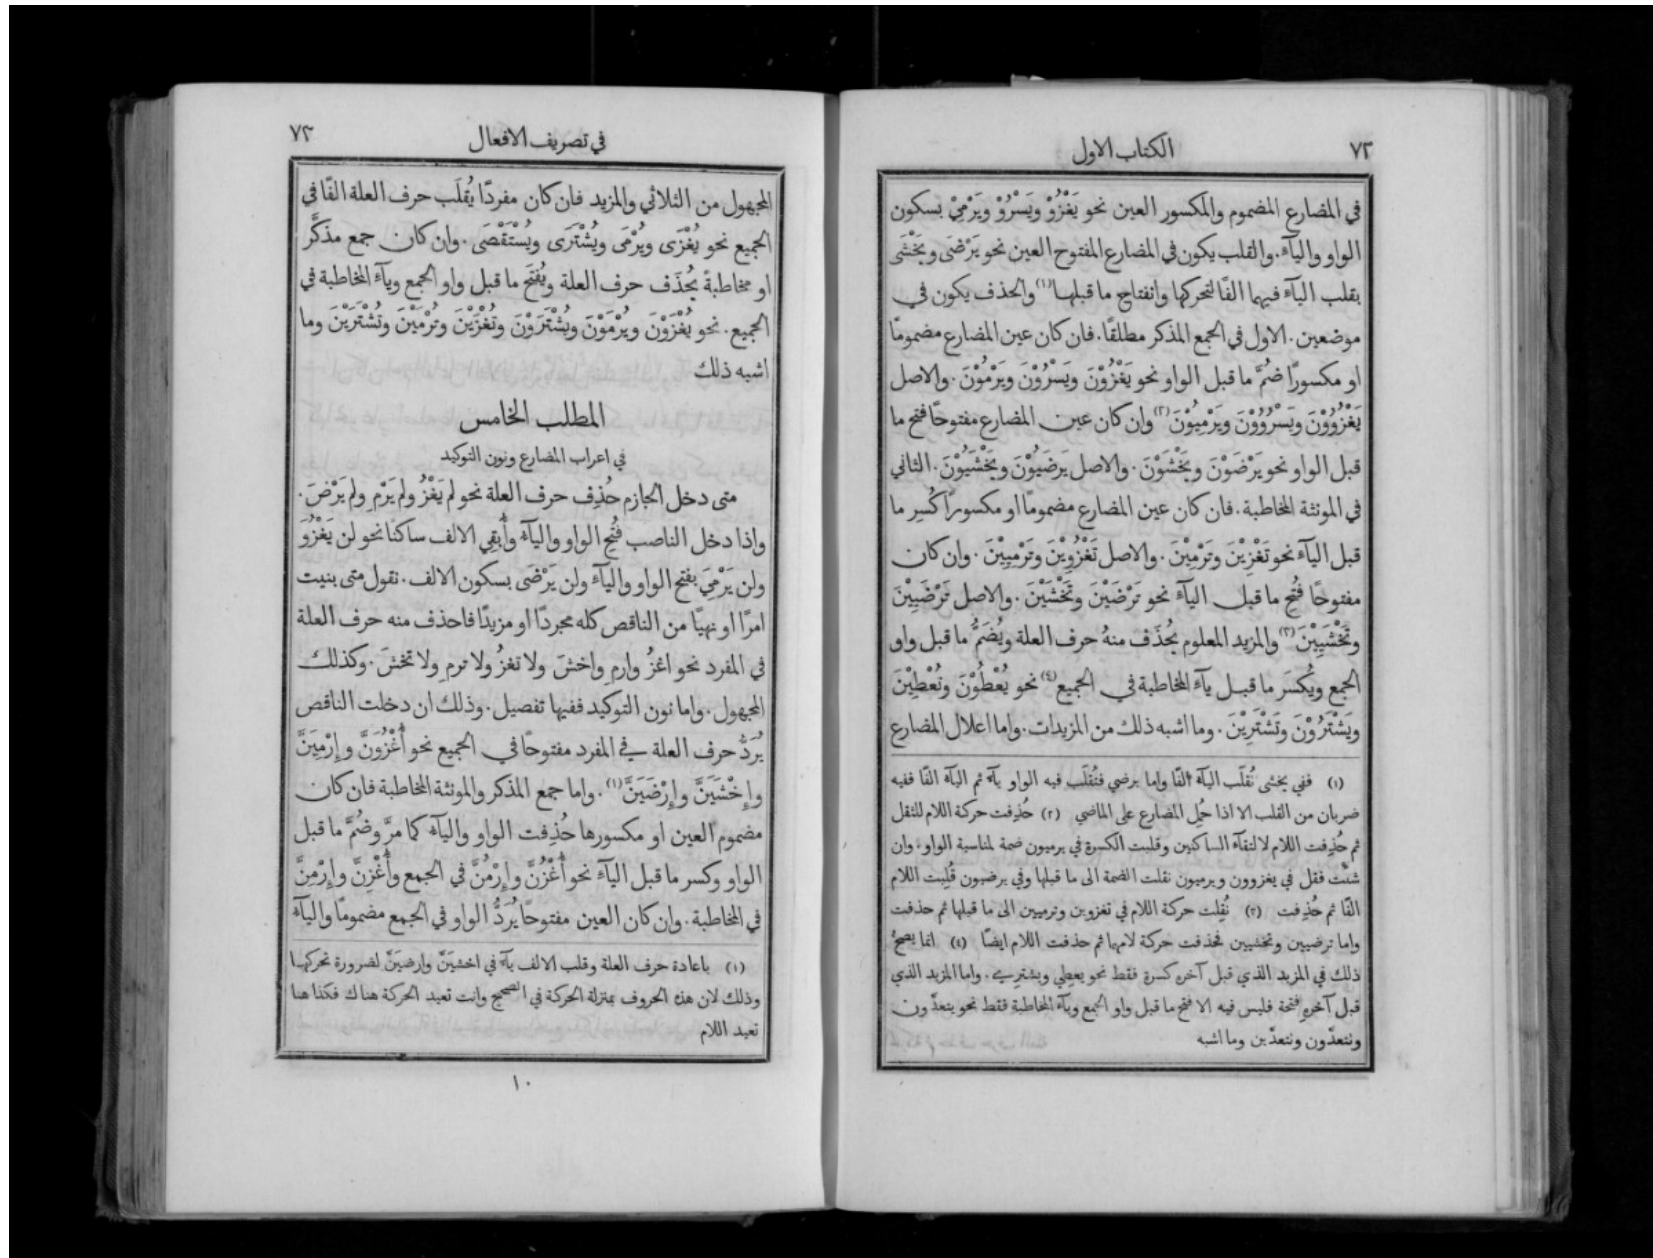 ٧٢
الكتاب الاول
في المضارع المضموم والمكسور العين نحو يَغْزُوْ وَيَسْرُوْ ويَرْمِيْ بسكون
الواو واليآء. والقلب يكون في المضارع المفتوح العين نحو يَرْضَى ويَخْشَى
بقلب اليآء فيهما الفًا لتحركها وانفتاح ما قبلها (١) والحذف يكون في
موضعين. الاول في الجمع المذكر مطلقًا. فان كان عين المضارع مضمومًا
او مكسورًا ضُمَّ ما قبل الواو نحو يَغْزُوْنَ ويَسْرُوْنَ ويَرْمُوْنَ. والاصل
يَغْزُوُوْنَ ويَسْرُوُوْنَ ويَرْمِيُوْنَ (٢) وان كان عين المضارع مفتوحًا فتح ما
قبل الواو نحو يَرْضَوْنَ ويَخْشَوْنَ. والاصل يَرضَيُوْنَ ويَخْشَيُوْنَ. الثاني
في المونثة المخاطبة. فان كان عين المضارع مضمومًا او مكسورًا كُسِر ما
قبل اليآء نحو تَغْزِيْنَ وتَرْمِيْنَ. والاصل تَغْزُوِيْنَ وتَرْمِيِيْنَ. وان كان
مفتوحًا فُتِح ما قبل اليآء نحو تَرْضَيْنَ وتَخْشَيْنَ. والاصل تَرْضَيِيْنَ
وتَخْشَيِيْنَ (٣) والمزيد المعلوم يُحذَف منهُ حرف العلة ويُضَمُّ ما قبل واو
الجمع ويُكسَر ما قبل يآء المخاطبة في الجميع (٤) نحو يُعْطُوْنَ وتُعْطِيْنَ
ويَشْتَرُوْنَ وتَشْتَرِيْنَ. وما اشبه ذلك من المزيدات. واما اعلال المضارع
(١) ففي يخشى تُقلَب اليآء الفًا واما يرضى فتُقلَب فيه الواو يآء ثم اليآء الفًا ففيه
ضربان من القلب الا اذا حُمِل المضارع على الماضي (٢) حُذِفت حركة اللام للثقل
ثم حُذِفت اللام لالتقآء الساكنين وقلبت الكسرة في يرميون ضمة لمناسبة الواو. وان
شئت فقل في يغزوون ويرميون نقلت الضمة الى ما قبلها وفي يرضيون قُلِبت اللام
الفًا ثم حُذِفت (٣) نُقِلت حركة اللام في تغزوين وترميين الى ما قبلها ثم حذفت
واما ترضيين وتخشيين فحذفت حركة لامهما ثم حذفت اللام ايضًا (٤) انما يصحُّ
ذلك في المزيد الذي قبل آخره كسرة فقط نحو يعطِي ويشترِي. واما المزيد الذي
قبل آخرهِ فتحة فليس فيه الا فتح ما قبل واو الجمع ويآء المخاطبة فقط نحو يتعدَّون
وتتعدَّون وتتعدَّين وما اشبه
في تصريف الافعال
٧٣
المجهول من الثلاثي والمزيد فان كان مفردًا يُقلَب حرف العلة الفًا في
الجميع نحو يُغْزَى ويُرْمَى ويُشْتَرَى ويُسْتَقْصَى. وان كان جمع مذكَّر
او مخاطبةً يُحذَف حرف العلة ويُفتَح ما قبل واو الجمع ويآء المخاطبة في
الجميع. نحو يُغْزَوْنَ ويُرْمَوْنَ ويُشْتَرَوْنَ وتُغْزَيْنَ وتُرْمَيْنَ وتُشْتَرَيْنَ وما
اشبه ذلك
المطلب الخامس
في اعراب المضارع ونون التوكيد
متى دخل الجازم حُذِف حرف العلة نحو لم يَغْزُ ولم يَرْمِ ولم يَرْضَ.
واذا دخل الناصب فُتِح الواو واليآء وأُبقِي الالف ساكنًا نحو لن يَغْزُوَ
ولن يَرْمِيَ بفتح الواو واليآء ولن يَرْضَى بسكون الالف. نقول متى بنيت
امرًا او نهيًا من الناقص كله مجردًا او مزيدًا فاحذف منه حرف العلة
في المفرد نحو اغزُ وارمِ واخشَ ولا تغزُ ولا ترمِ ولا تخشَ. وكذلك
المجهول. واما نون التوكيد ففيها تفصيل. وذلك ان دخلت الناقص
يُرَدُّ حرف العلة في المفرد مفتوحًا في الجميع نحو أُغْزُوَنَّ وإِرْمِيَنَّ
وإِخْشَيَنَّ وإِرْضَيَنَّ (١). واما جمع المذكر والمونثة المخاطبة فان كان
مضموم العين او مكسورها حُذِفت الواو واليآء كما مرَّ وضُمَّ ما قبل
الواو وكسر ما قبل اليآء نحو أُغْزُنَّ وإِرْمُنَّ في الجمع وأُغْزِنَّ وإِرْمِنَّ
في المخاطبة. وان كان العين مفتوحًا يُرَدُّ الواو في الجمع مضمومًا واليآء
(١) باعادة حرف العلة وقلب الالف يآء في اخشيَنَّ وارضيَنَّ لضرورة تحركها
وذلك لان هذه الحروف بمنزلة الحركة في الصحيح وانت تعيد الحركة هناك فكذا هنا
تعيد اللام
١٠